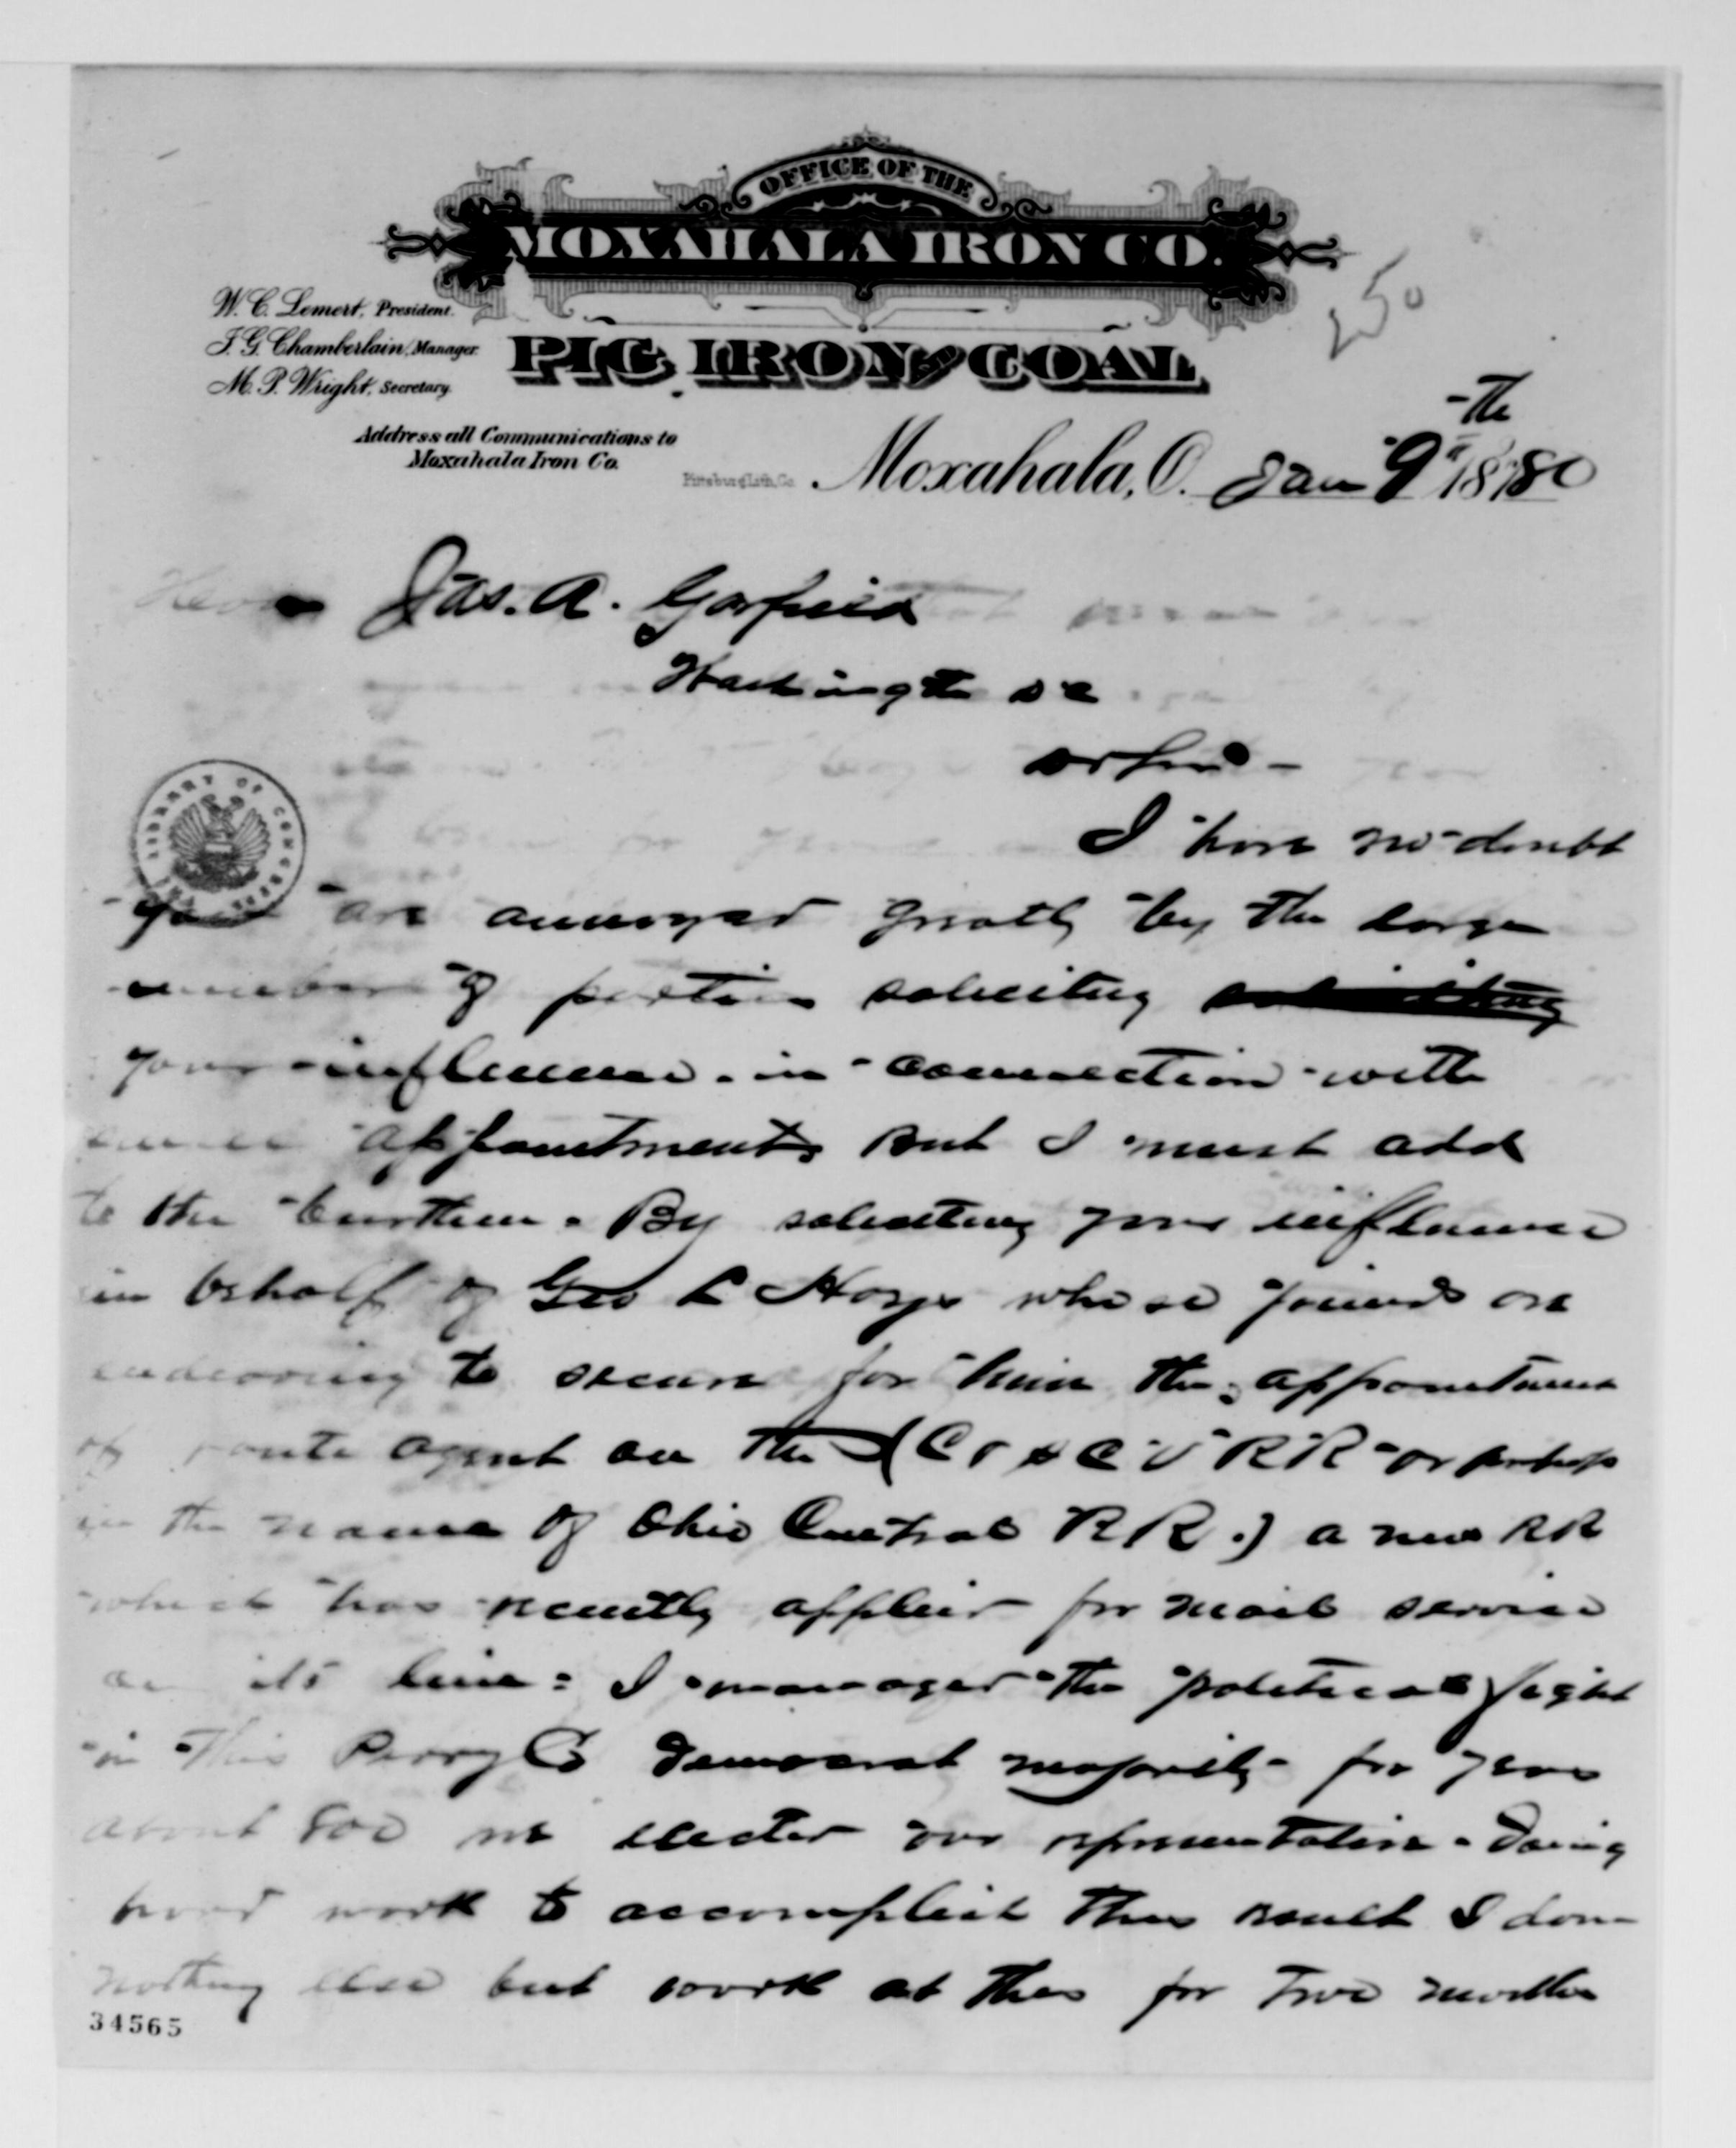 OFFICE OF THE
MOXAHALA IRON CO.
PIG IRON AND COAL
W. C. Lemert, President.
J. G. Chamberlain, Manager.
M. P. Wright, Secretary.
Address all Communications to
Moxahala Iron Co.
Pittsburg Lith. Co.
250
Moxahala, O. Jan 9th 1880
Hon Jas. A. Garfield
Washington DC
Dr Sir -
I have no doubt
you are annoyed greatly by the large
number of parties soliciting soliciting
your influence in connection with
appointments But I must add
to the burthen. By soliciting your influence
in behalf of Geo L whose friends are
endeavoring to secure for him the appointment
of route agent on the (C V RR or perhaps
in the name of Ohio Central RR.) a new RR
which has recently applied for mail service
on its line: I managed the political fight
in this Perry Co Democrat majority for years
about 800 we elected our representative. Doing
hard work to accomplish this result I done
nothing else but work at this for two months
34565
THE LIBRARY OF CONGRESS